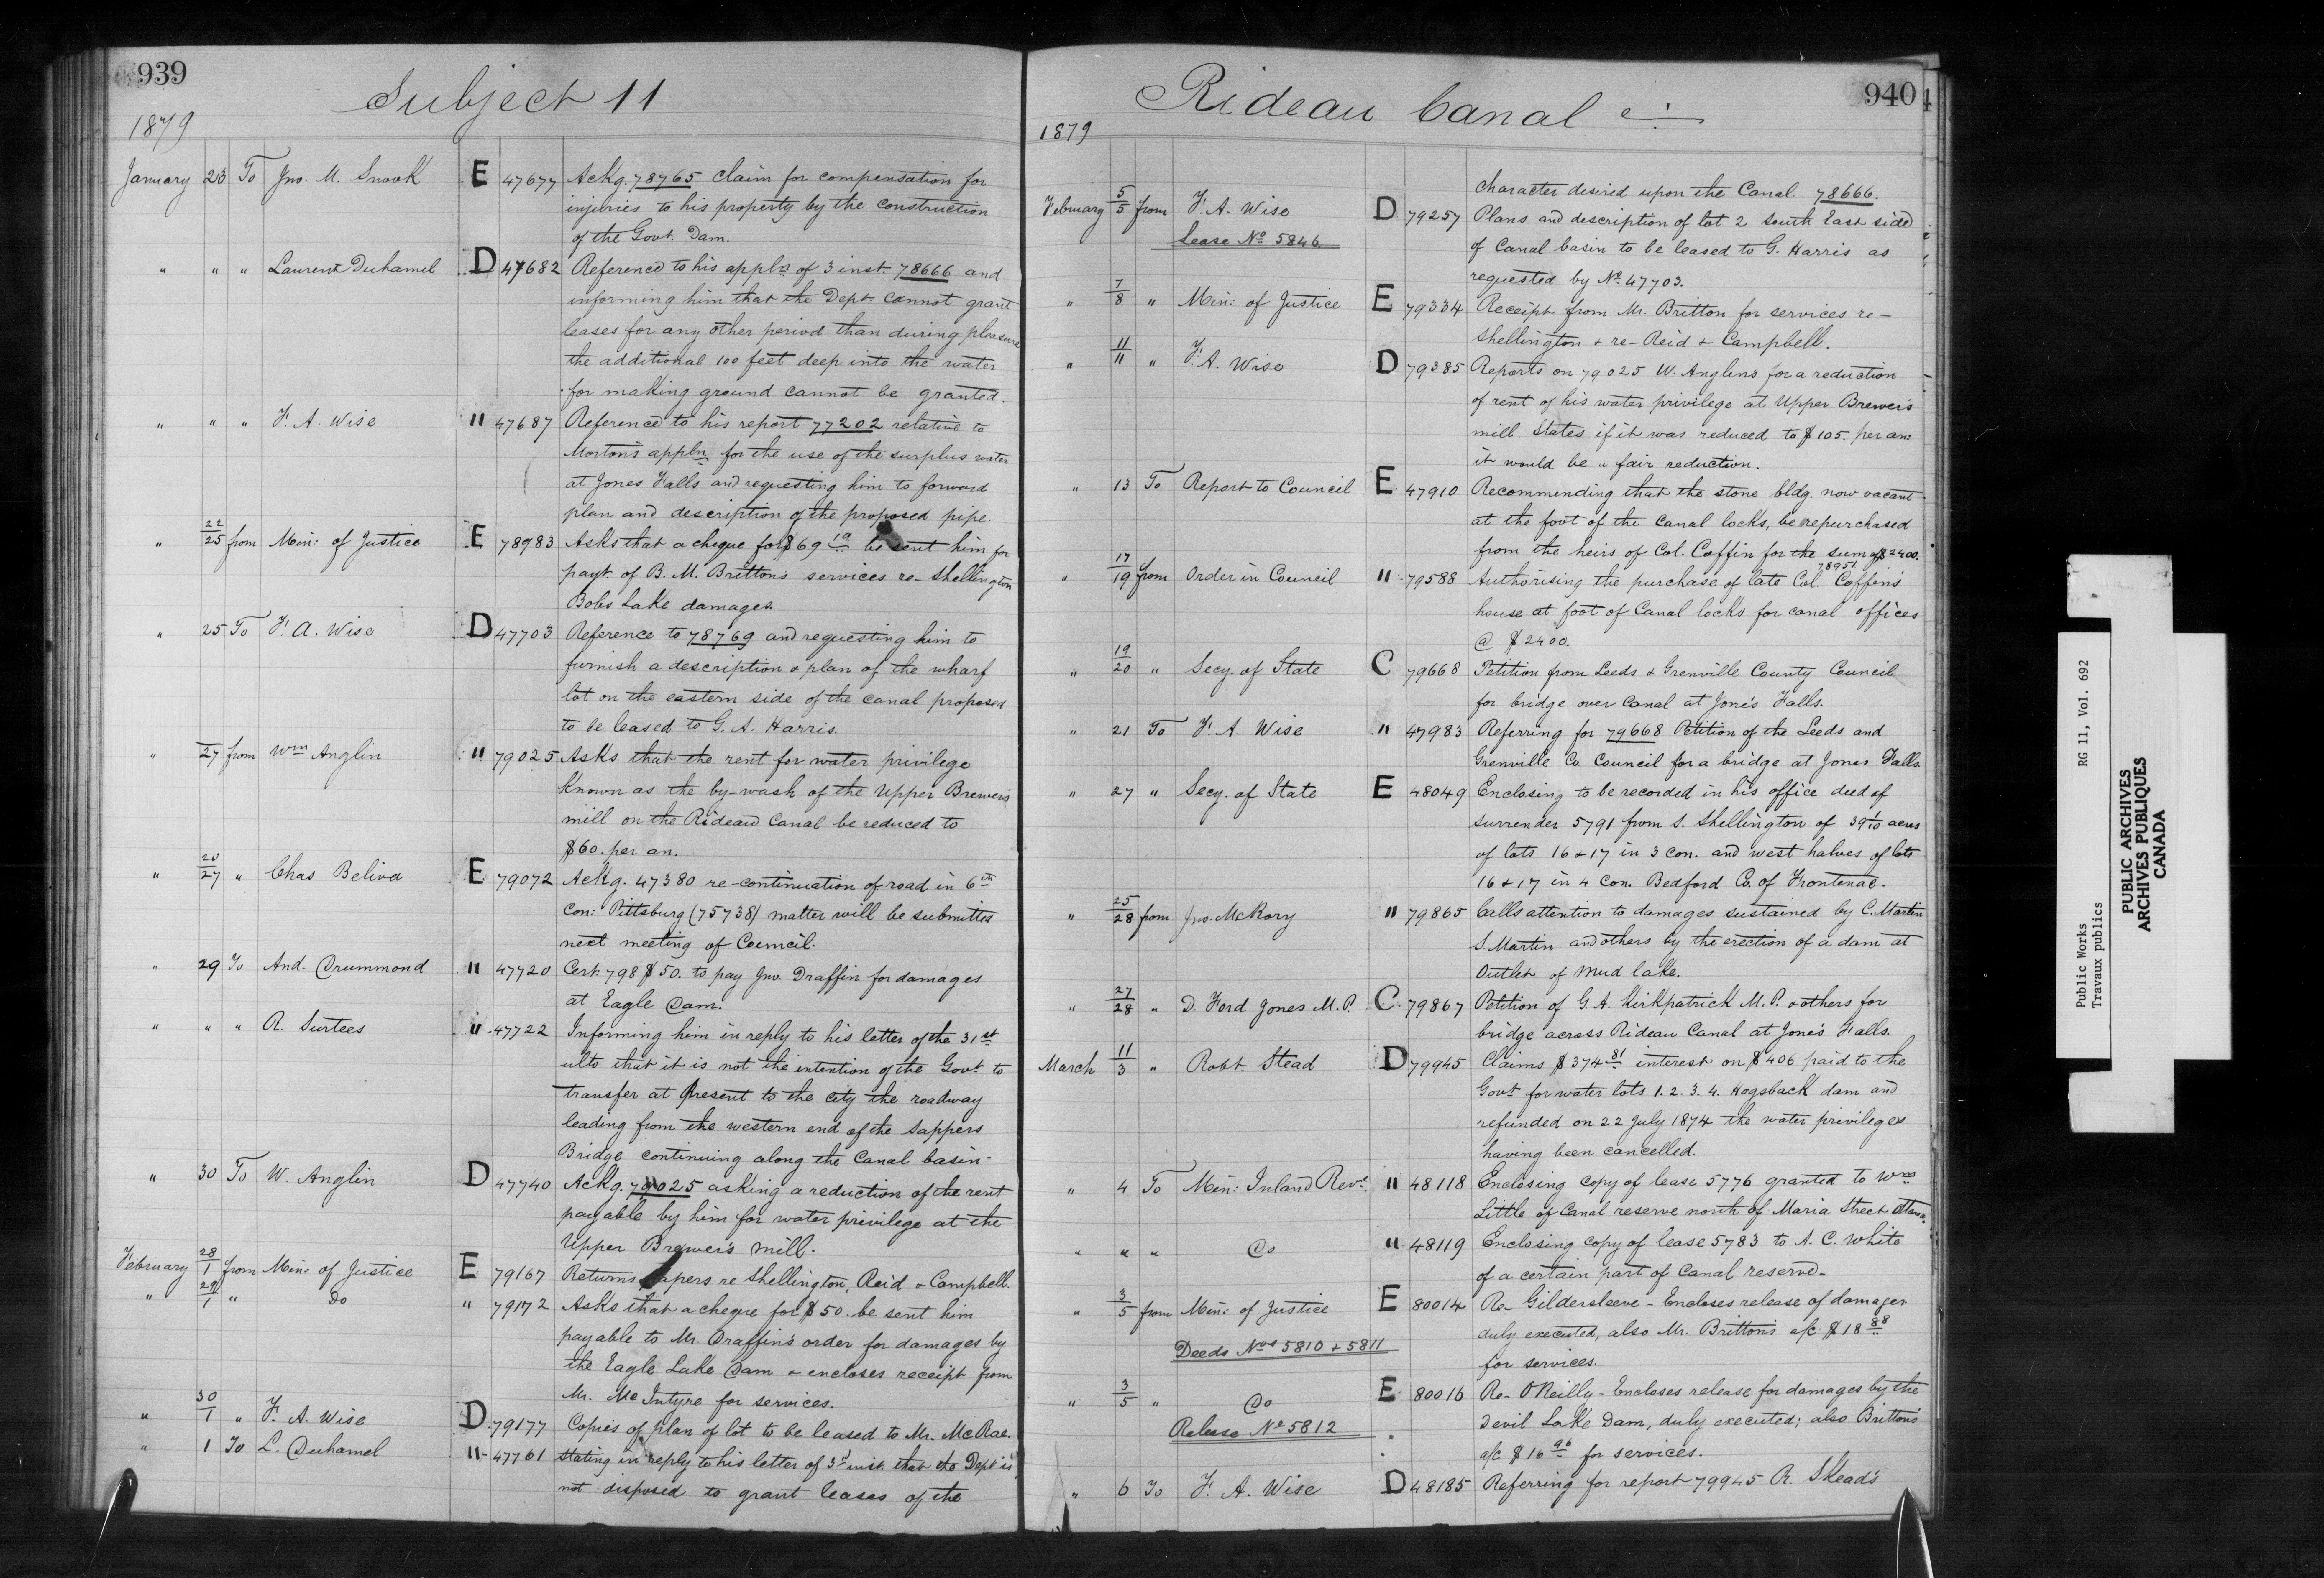 939
Subject 11
1879
January 23 To Jno. M. Snook E 47677 Ackg. 78765 claim for compensation for
injuries to his property by the construction
of the Govt. Dam.
" " " Laurent Duhamel D 47682 Reference to his appln. of 3 inst. 78666 and
informing him that the Dept. cannot grant
leases for any other period than during pleasure
the additional 100 feet deep into the water
for making ground cannot be granted.
" " " F. A. Wise " 47687 Reference to his report 77202 relative to
Morton's appln. for the use of the surplus water
at Jones Falls and requesting him to forward
plan and description of the proposed pipe.
" 22/25 from Min: of Justice E 78983 Asks that a cheque for $69 19 be sent him for
payt. of B. M. Britton's services re- Shellington
Bobs Lake damages.
" 25 To F. A. Wise D 47703 Reference to 78769 and requesting him to
furnish a description & plan of the wharf
lot on the eastern side of the canal proposed
to be leased to G. A. Harris.
" 27 from Wm Anglin " 79025 Asks that the rent for water privilege
known as the by-wash of the Upper Brewers
mill on the Rideau Canal be reduced to
$60. per an.
" 20/27 " Chas Beliva E 79072 Ackg. 47380 re-continuation of road in 6th
Con: Pittsburg (75738) matter will be submitted
next meeting of Council.
" 29 To And. Drummond " 47720 Cert. 798 $50. to pay Jno. Draffin for damages
at Eagle Dam.
" " " R. Surtees " 47722 Informing him in reply to his letter of the 31st
ulto that it is not the intention of the Govt. to
transfer at present to the city the roadway
leading from the western end of the Sappers
Bridge continuing along the Canal basin-
" 30 To W. Anglin D 47740 Ackg. 79025 asking a reduction of the rent
payable by him for water privilege at the
Upper Brewer's mill.
February 28/1 from Min: of Justice E 79167 Returns papers re Shellington, Reid & Campbell.
" 29/1 " Do " 79172 Asks that a cheque for $50. be sent him
payable to Mr. Draffin's order for damages by
the Eagle Lake Dam & encloses receipt from
Mr. McIntyre for services.
" 30/1 " F. A. Wise D 79177 Copies of plan of lot to be leased to Mr. McRae.
" 1 To L. Duhamel " 47761 Stating in reply to his letter of 3rd inst. that the Dept. is
not disposed to grant leases of the
940
Rideau Canal
1879
character desired upon the Canal. 78666.
February 5/5 from F. A. Wise D 79257 Plans and description of lot 2 South East side
Lease No 5846 of Canal basin to be leased to G. Harris as
requested by No. 47703.
" 7/8 " Min: of Justice E 79334 Receipt from Mr. Britton for services re-
Shellington & re- Reid & Campbell.
" 11/11 " F. A. Wise D 79385 Reports on 79025 W. Anglins for a reduction
of rent of his water privilege at Upper Brewer's
mill. States if it was reduced to $105. per an:
it would be a fair reduction.
" 13 To Report to Council E 47910 Recommending that the stone bldg. now vacant
at the foot of the canal locks, be repurchased
from the heirs of Col. Coffin for the sum of $2400.
78951
" 17/19 from Order in Council " 79588 Authorising the purchase of late Col. Coffin's
house at foot of Canal locks for canal offices
@ $2400.
" 19/20 " Secy. of State C 79668 Petition from Leeds & Grenville County Council
for bridge over Canal at Jone's Falls.
" 21 To F. A. Wise " 47983 Referring for 79668 Petition of the Leeds and
Grenville Co. Council for a bridge at Jones Falls.
" 27 " Secy. of State E 48049 Enclosing to be recorded in his office deed of
surrender 5791 from S. Shellington of 39 1/10 acres
of lots 16 & 17 in 3 Con. and west halves of lots
16 & 17 in 4 Con. Bedford Co. of Frontenac.
" 25/28 from Jno. McRory " 79865 Calls attention to damages sustained by C. Martin
S. Martin and others by the erection of a dam at
Outlet of Mud lake.
" 27/28 " D. Ford Jones M.P. C 79867 Petition of G. A. Kirkpatrick M.P. & others for
bridge across Rideau Canal at Jone's Falls.
March 11/3 " Robt. Stead D 79945 Claims $374 81 interest on $406 paid to the
Govt. for water lots 1. 2. 3. 4. Hogsback dam and
refunded on 22 July 1874 the water privileges
having been cancelled.
" 4 To Min: Inland Reve. " 48118 Enclosing copy of lease 5776 granted to Wm
Little of Canal reserve north of Maria Street Ottawa.
" " " Do " 48119 Enclosing copy of lease 5783 to A. C. White
of a certain part of Canal reserve-
" 3/5 from Min: of Justice E 80014 Re- Gildersleeve - Encloses release of damages
duly executed, also Mr. Britton's a/c $18 88
Deeds Nos 5810 & 5811 for services.
" 3/5 " Do E 80016 Re- O'Reilly - Encloses release for damages by the
Release No 5812 Devil Lake Dam, duly executed; also Britton's
a/c $16 96 for services.
" 6 To F. A. Wise D 48185 Referring for report 79945 R. Stead's
Public Works RG 11, Vol. 692
Travaux publics
PUBLIC ARCHIVES
ARCHIVES PUBLIQUES
CANADA